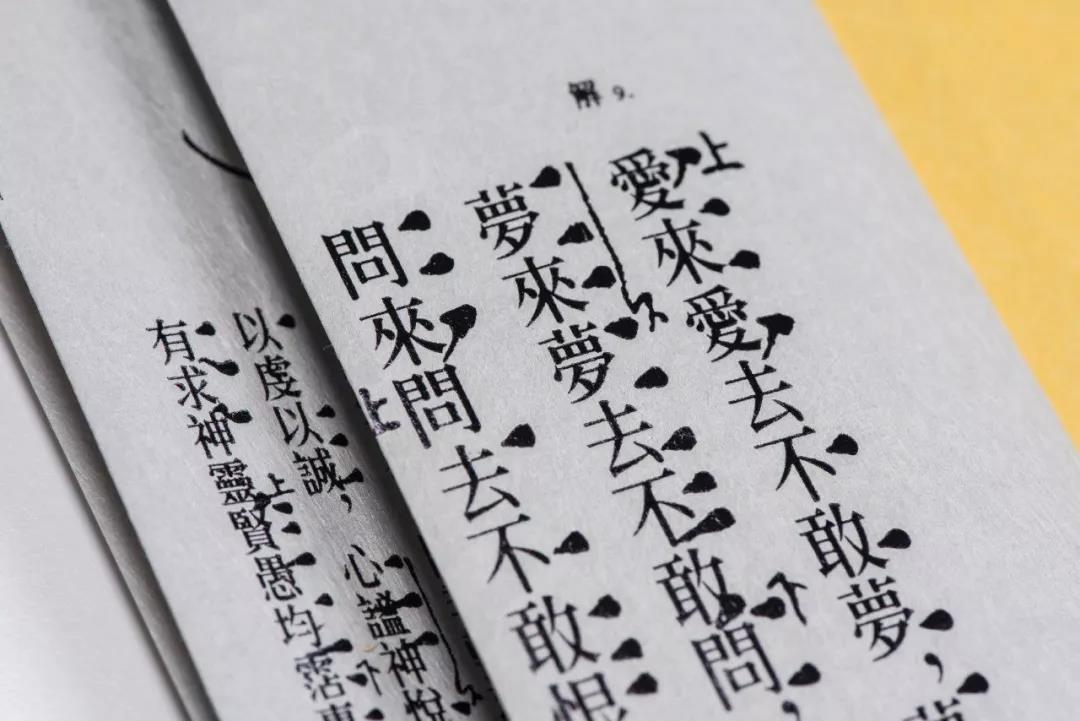 解 9.
上
愛來愛去不敢夢，
夢來夢去不敢問，
下
問來問去不敢恨
上
以虔以誠，心謐神悅
有求神靈賢愚均霑
上
下